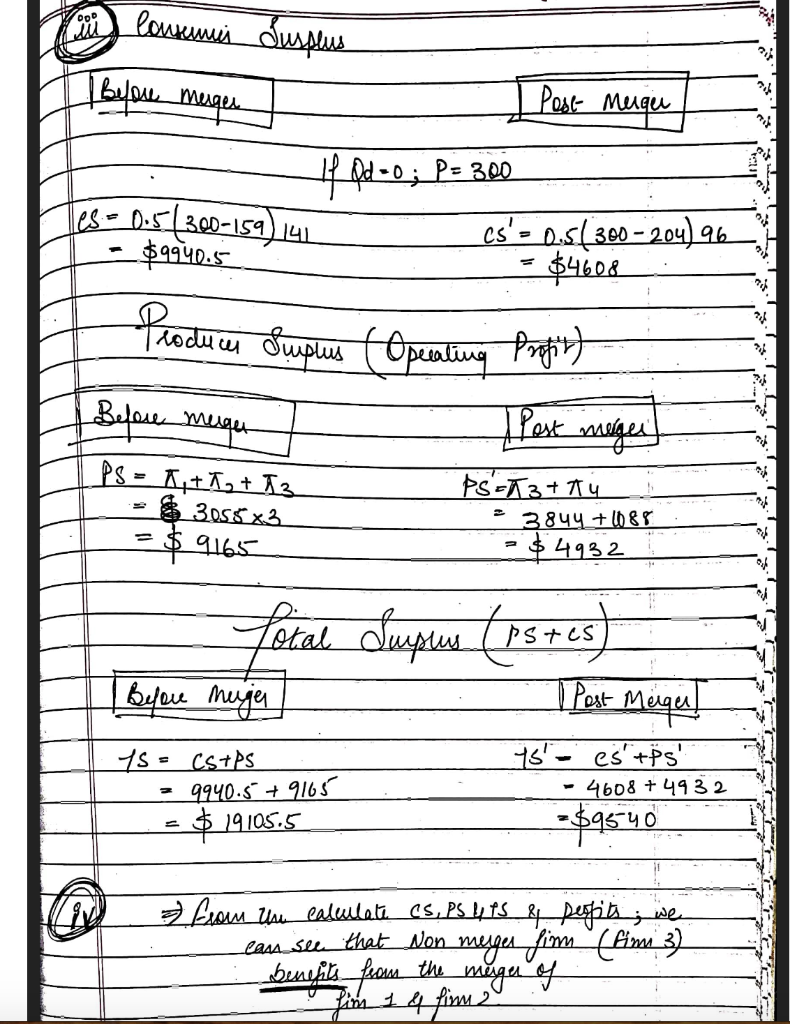 iii Consumer Surplus
Before merger Post- Merger
If Qd=0; P= 300
CS = 0.5(300-159) 141 CS' = 0.5(300-204) 96
= $9940.5 = $4608
Producer Surplus (Operating Profit)
Before merger Post merger
PS = π1 + π2 + π3 PS'=π3 + π4
= 3055x3 = 3844 +1088
= $ 9165 = $ 4932
Total Surplus (PS+CS)
Before merger Post Merger
TS = CS+PS TS' = CS'+PS'
= 9940.5 + 9165 = 4608 + 4932
= $ 19105.5 =$9540
iv ⇒ From the calculate CS, PS & TS & profits ; we
can see that Non merger firm (firm 3)
benefits from the merger of
firm 1 & firm 2